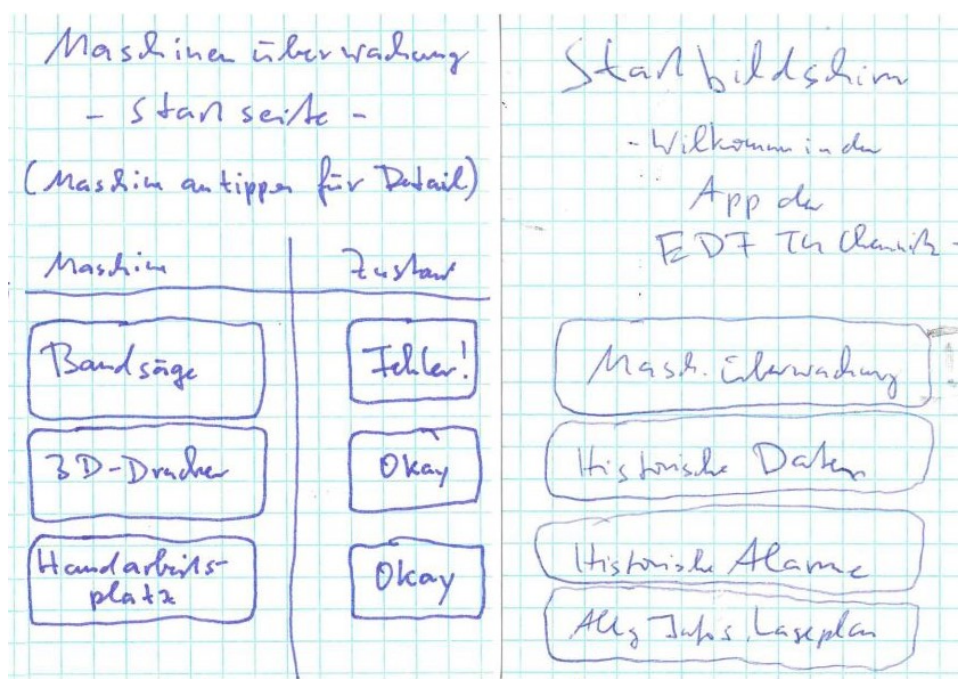 Maschinenüberwachung
- Startseite -
(Maschine antippen für Detail)
Maschine Zustand
Bandsäge Fehler!
3D-Drucker Okay
Handarbeits- Okay
platz
Startbildschirm
- Wilkommen in der
App der
EDF TU Chemnitz -
Masch. überwachung
Historische Daten
Historische Alarme
Allg Infos, Lageplan